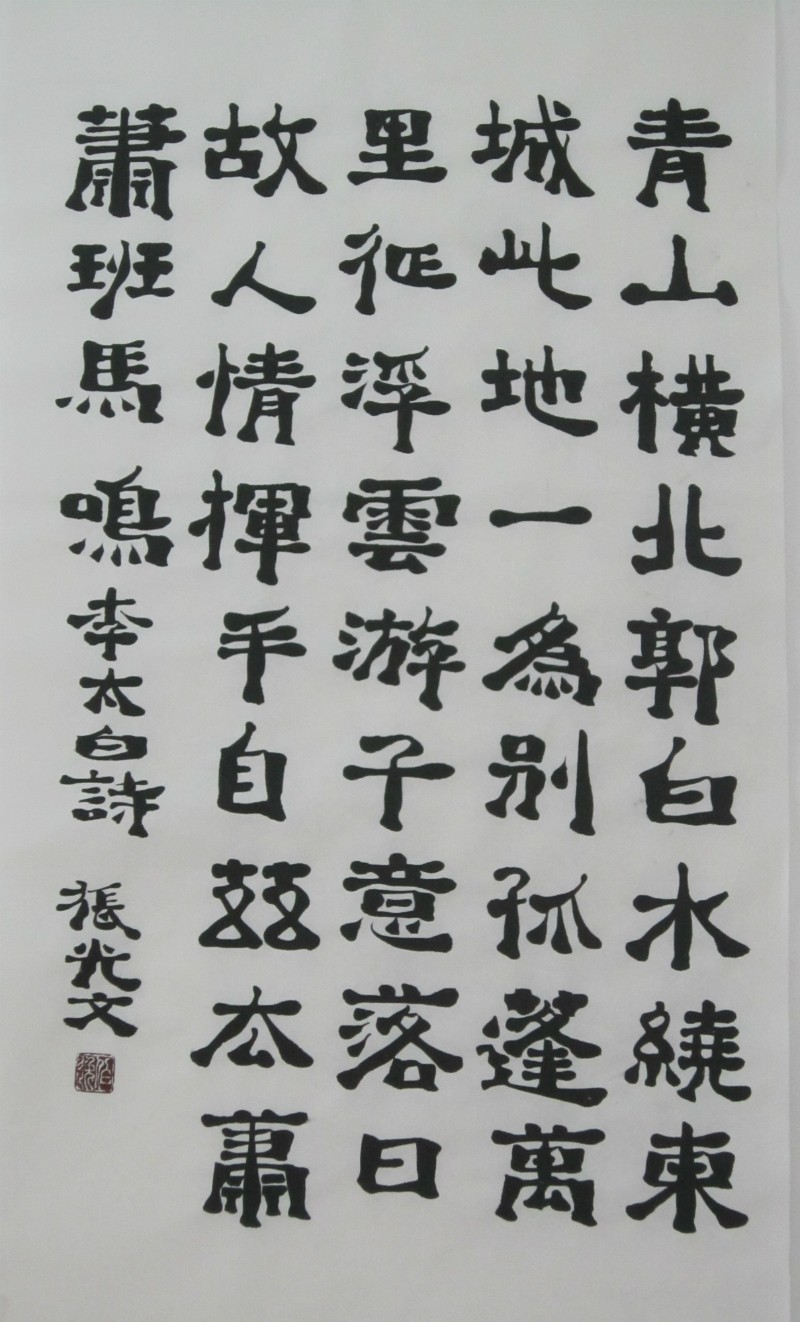 青山橫北郭白水繞東
城此地一為別孤蓬萬
里征浮雲游子意落日
故人情揮手自茲去蕭
蕭班馬鳴李太白詩
張光文